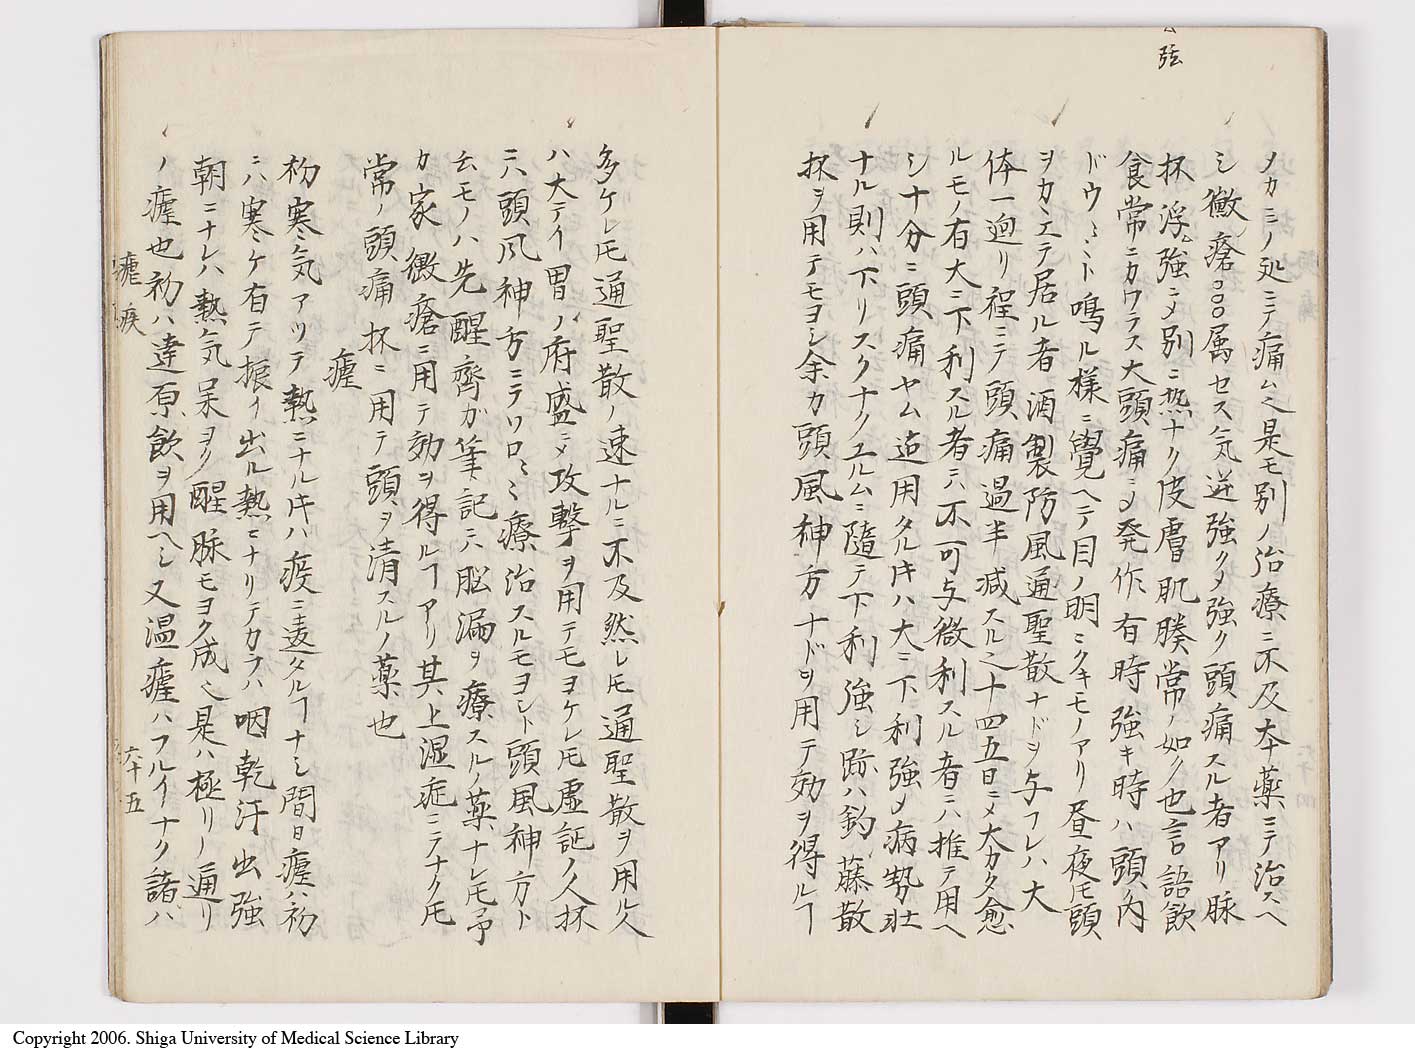 弦
メカミノ処ニテ痛ム之是モ別ノ治療ニ不及大十薬ニテ治スヘ
シ黴瘡□□□属セス気逆強クメ強ク頭痛スル者アリ脉
抔浮強ニメ別ニ熱ナク皮膚肌腠常ノ如ク也言語飲
食常ニカワラス大頭痛ニメ発作有時強キ時ハ頭内
ドウミミト鳴ル様ニ覺ヘテ目ノ明ニクキモノアリ昼夜𪜈頭
ヲカヽエテ居ル者酒製防風通聖散ナドヲ与フレハ大
体一廻リ程ニテ頭痛過半减スル之十四五日ニメ大カタ愈
ルモノ有大ニ下利スル者ニハ不可与微利スル者ニハ推テ用ヘ
シ十分ニ頭痛ヤム迠用タル片ハ大ニ下利強メ病勢壮
ナル則ハ下リスクナクエルムニ隨テ下利強シ跡ハ釣藤散
抔ヲ用テモヨシ余カ頭風神方ナドヲ用テ効ヲ得ルヿ
多ケレ𪜈通聖散ノ速ナルニ不及然レ𪜈通聖散ヲ用ル久
ハ大テイ胃ノ府盛ニメ攻撃ヲ用テモヨケレ𪜈虚証ノ人抔
ニハ頭風神方ニテソロミミ療治スルモヨシト頭風神方ト
云モノハ先醒齊ガ筆記ニハ脳漏ヲ療スルノ薬ナレ𪜈予
カ家黴瘡ニ用テ効ヲ得ルヿアリ其上湿症ニテナク𪜈
常ノ頭痛抔ニ用テ頭ヲ清スルノ薬也
瘧
初寒気アツテ熱ニナル片ハ疫ニ違タルヿナシ間日瘧ハ初
ニハ寒ケ有テ振イ出ル熱ニナリテカラハ咽乾汗出強
朝ニナレハ熱気呆ヨク醒脉モヨク成之是ハ極リノ通リ
ノ瘧也初ハ達原飲ヲ用ヘシ又温瘧ハフルイナク諸ハ
瘧疾
六十五